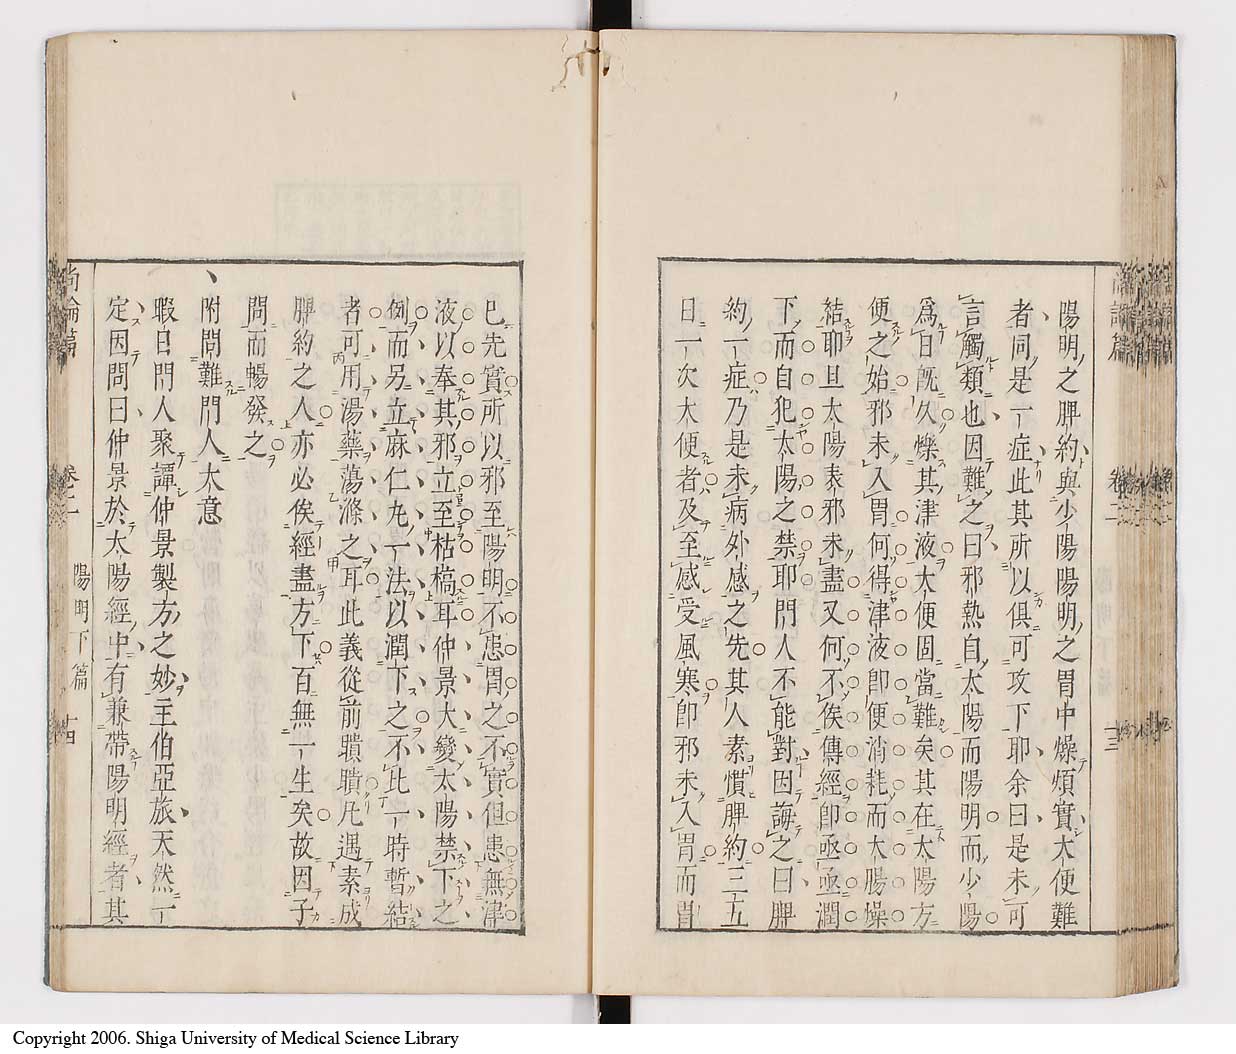 陽明之脾約與少陽陽明之胃中燥煩實大便難
者同是一症此其所以俱可攻下耶余曰是未可
言觸類也因難之曰邪熱自太陽而陽明而少陽
爲日旣久爍其津液大便固當難矣其在太陽方
便之始邪未入胃何得津液卽便消耗而大腸燥
結耶且太陽表邪未盡又何不俟傳經卽亟亟潤
下而自犯太陽之禁耶門人不能對因誨之曰脾
約一症乃是未病外感之先其人素慣脾約三五
日一次大便者及至感受風寒卽邪未入胃而胃
已先實所以邪至陽明不患胃之不實但患無津
液以奉其邪立至枯槁耳仲景大變太陽禁下之
例而另立麻仁丸一法以潤下之不比一時暫結
者可用湯藥蕩滌之耳此義從前聵聵凡遇素成
脾約之人亦必俟經盡方下百無一生矣故因子
問而暢發之
附問難門人大意
暇日門人聚譚仲景製方之妙主伯亞旅天然一
定因問曰仲景於太陽經中有兼帶陽明經者其
尚論篇 卷二 陽明下篇 十四
卷二 十三
Copyright 2006. Shiga University of Medical Science Library